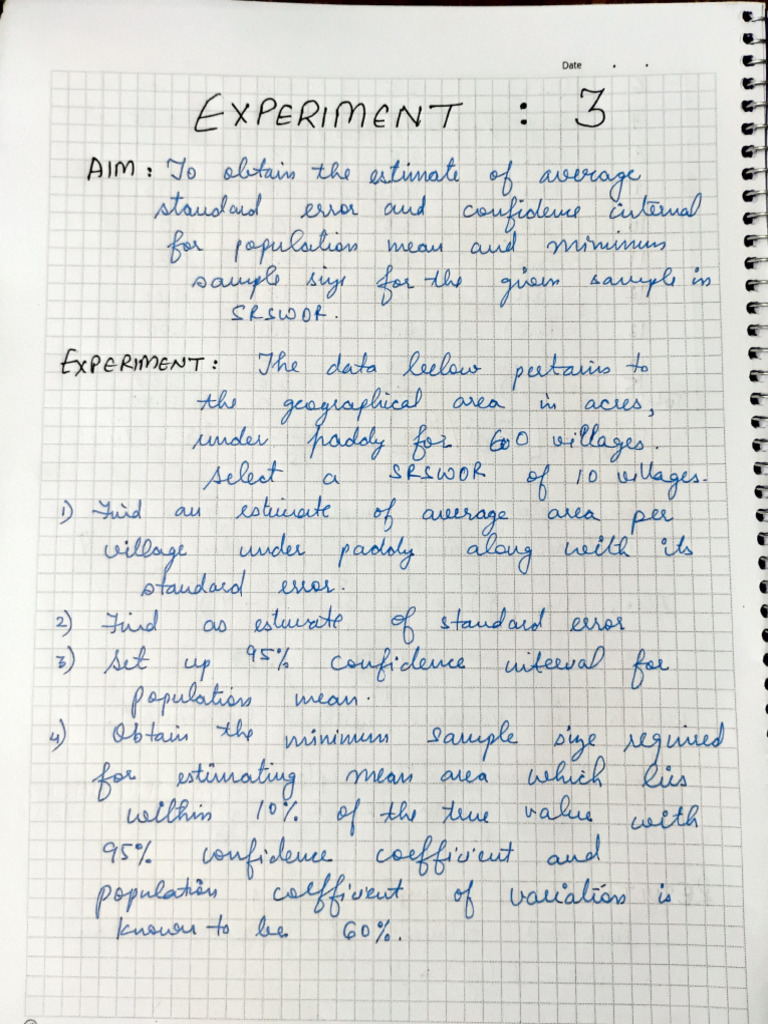 Date . .
EXPERIMENT : 3
AIM : To obtain the estimate of average
standard error and confidence internal
for population mean and minimum
sample size for the given sample in
SRSWOR.
EXPERIMENT : The data below pertains to
the geographical area in acres,
under paddy for 600 villages.
select a SRSWOR of 10 villages.
1) Find an estimate of average area per
village under paddy along with its
standard error.
2) Find as estimate of standard error
3) Set up 95% confidence interval for
population mean.
4) Obtain the minimum sample size required
for estimating mean area which lies
within 10% of the true value with
95% confidence coefficient and
population coefficient of variation is
known to be 60%.